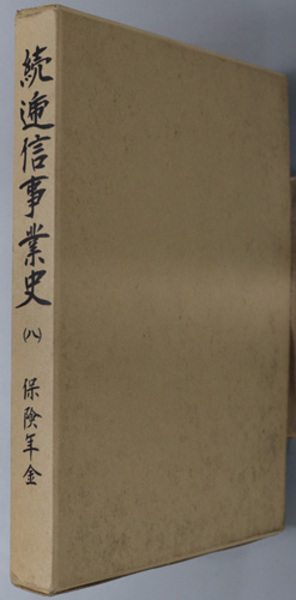 続逓信事業史
(八)
保険年金